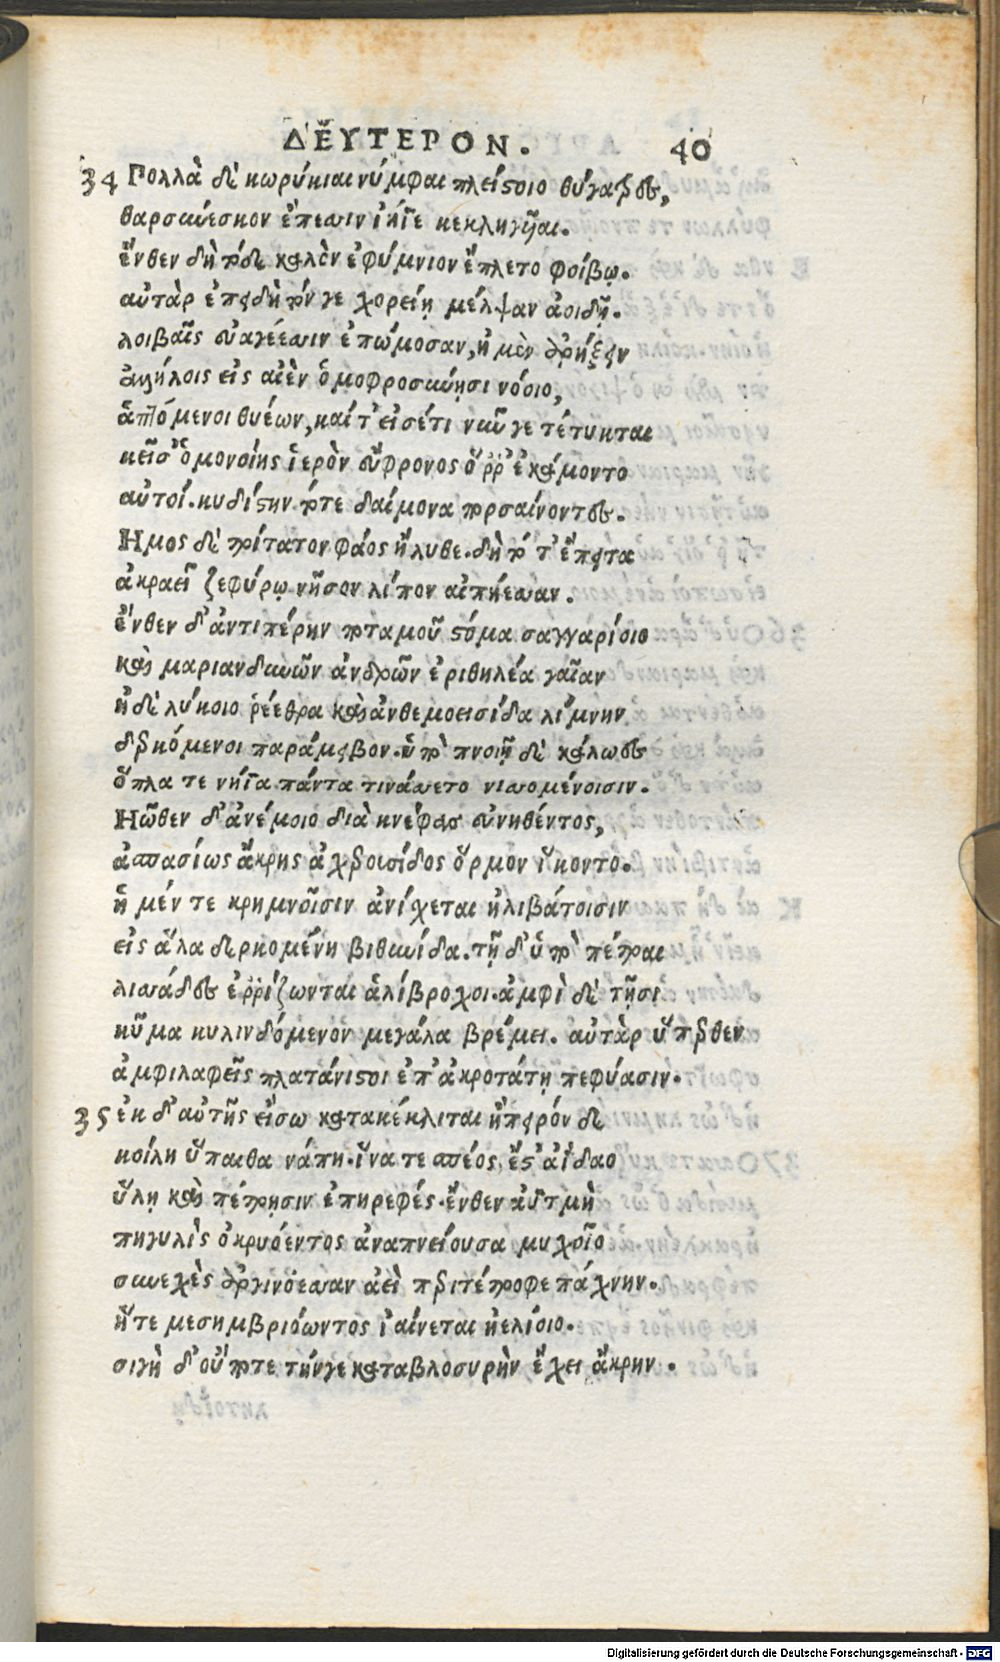 ΔΕΎΤΕΡΟΝ. 40
34 Πολλὰ δὲ κωρύκιαι νύμφαι πλείστοιο θύγατρες,
θαρσαύεσκον ἔπεσιν ἰήϊε κεκληγῆαι.
ἔνθεν δὴ τόδε καλὸν ἐφύμνιον ἔπλετο φοίβῳ.
αὐτὰρ ἐπειδὴ τόν γε χορείῃ μέλψαν ἀοιδῇ.
λοιβαῖς εὐαγέεσιν ἐπώμοσαν, ἠ μὲν ἀρήξειν
ἀλλήλοις εἰς αἰὲν ὁμοφροσύνῃσι νόοιο,
ἁπτόμενοι θυέων, καί τ' εἰσέτι νῦν γε τέτυκται
κεῖσ' ὁμονοίης ἱερὸν εὔφρονος ὅ ῥρ' ἐκάμοντο
αὐτοί. κυδίστην τότε δαίμονα πορσαίνοντες.
Ημος δὲ τρίτατον φάος ἤλυθε. δὴ τό τ' ἔπειτα
ἀκραεῖ ζεφύρῳ νῆσον λίπον αἰπήεσσαν.
ἔνθεν δ' ἀντιπέρην ποταμοῦ στόμα σαγγαρίοιο
καὶ μαριανδυνῶν ἀνδρῶν ἐριθηλέα γαῖαν
ἠδὲ λύκοιο ῥέεθρα καὶ ἀνθεμοεισίδα λίμνην
δερκόμενοι παράμειβον. ὑπὸ πνοιῇ δὲ κάλωες
ὅπλα τε νήϊα πάντα τινάσσετο νισσομένοισιν.
Ηῶθεν δ' ἀνέμοιο διὰ κνέφας εὐνηθέντος,
ἀσπασίως ἄκρης ἀχερουσίδος ὅρμον ἵκοντο.
ἥ μέν τε κρημνοῖσιν ἀνίχεται ἠλιβάτοισιν
εἰς ἅλα δερκομένη βιθυνίδα. τῇ δ' ὑπὸ πέτραι
λισσάδες ἐῤῥίζωνται ἁλίβροχοι. ἀμφὶ δὲ τῇσι
κῦμα κυλινδόμενον μεγάλα βρέμει. αὐτὰρ ὕπερθεν
ἀμφιλαφεῖς πλατάνιστοι ἐπ' ἀκροτάτῃ πεφύασιν.
35 ἐκ δ' αὐτῆς εἴσω κατακέκλιται ἤπειρόν δε
κοίλη ὕπαιθα νάπη. ἵνα τε σπέος ἔστ' ἀΐδαο
ὕλῃ καὶ πέτρῃσιν ἐπηρεφές. ἔνθεν ἀϋτμὴ
πηγυλὶς ὀκρυόεντος ἀναπνείουσα μυχοῖο
συνεχὲς ἀργινόεσσαν ἀεὶ περιτέτροφε πάχνην.
ἥτε μεσημβριόωντος ἰαίνεται ἠελίοιο.
σιγὴ δ' οὔποτε τήνγε καταβλοσυρὴν ἔχει ἄκρην.
Digitalisierung gefördert durch die Deutsche Forschungsgemeinschaft - DFG